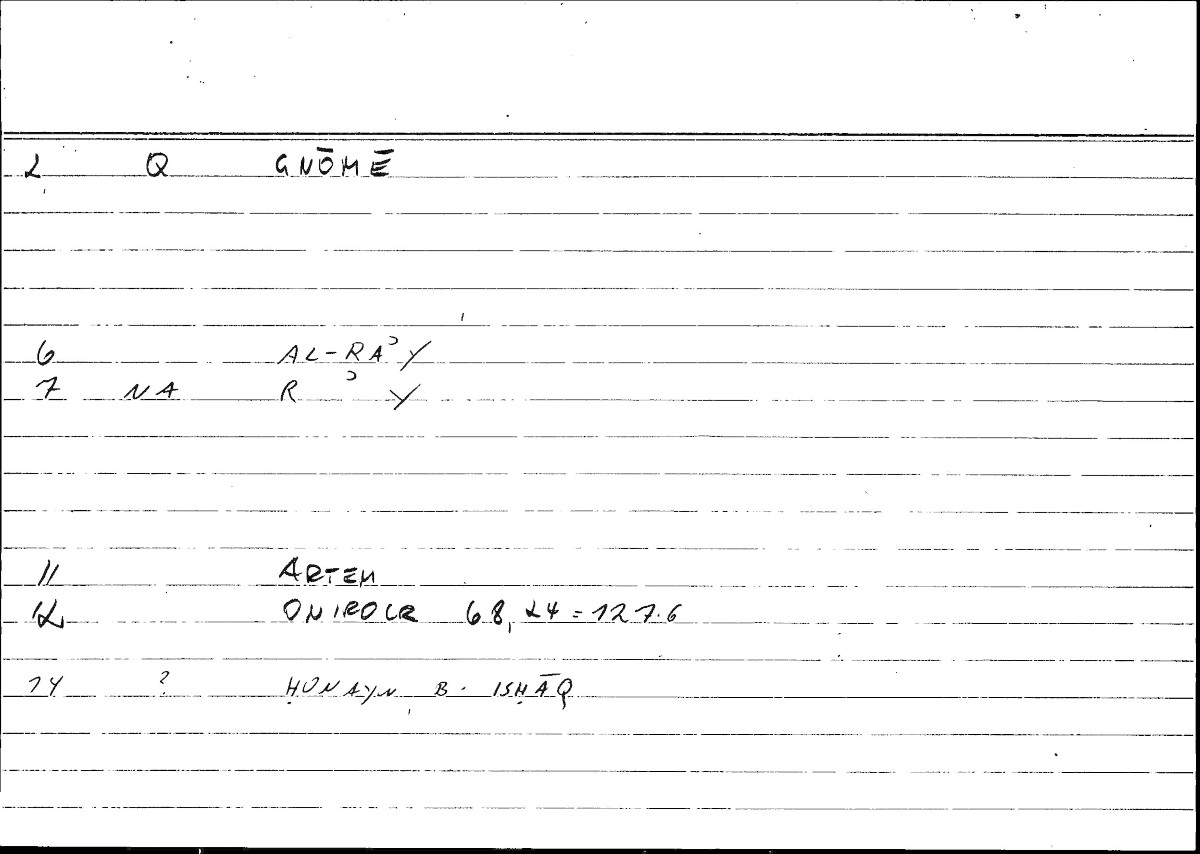 2 Q GNŌMĒ
6 AL-RAʾY
7 NA R ʾ Y
11 ARTEM
12 ONIROCR 68,24=127.6
14 ? ḤUNAYN B. ISḤĀQ